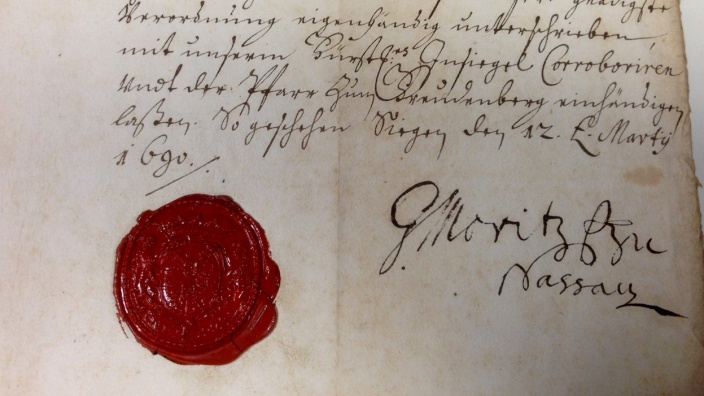 gnädigste
Verordnung eigenhändig unterschrieben,
mit unserm Fürstl. Insiegel Corroboriren
Undt der Pfarr Zum Freudenberg einhändigen
laßen. So geschehen Siegen den 12. Marty
1690.
Moritz F zu
Nassau